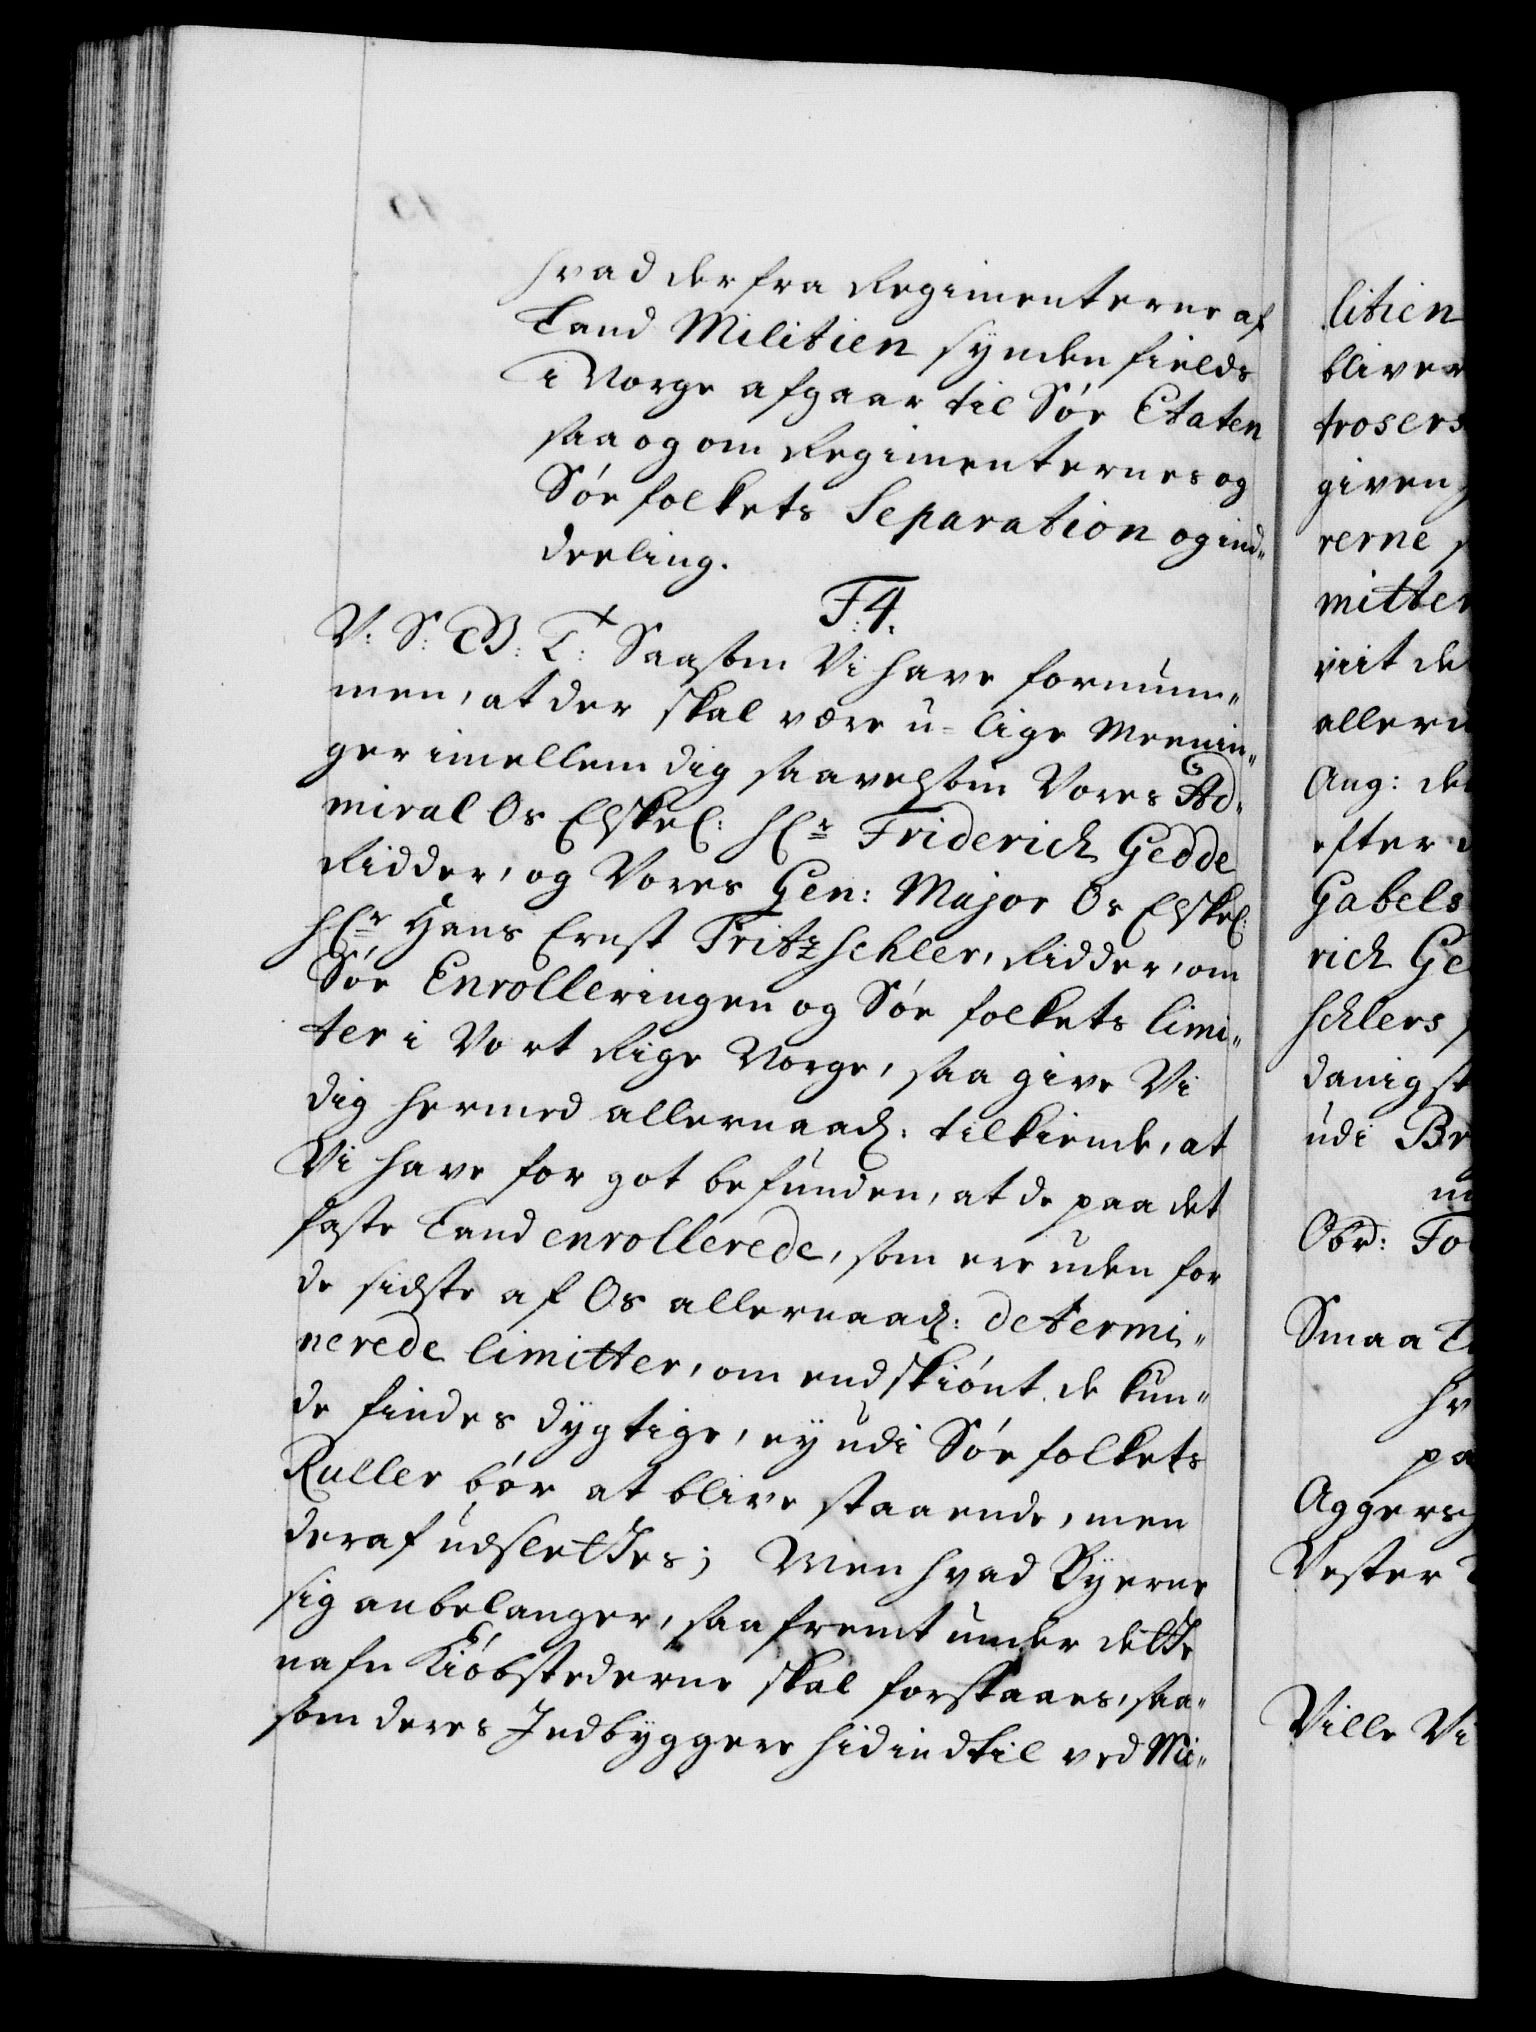 hvad der fra Regimenterne af
Land Militien synden fields
i Norge afgaar til Söe Etaten
saa og om Regimenternes og
Söe folkets Separation og ind„
deeling.
F. 4.
V: S: B: T: Saasom Vi have fornum„
men, at der skal være u-lige Meenin„
ger imellem dig saavelsom Vores Ad„
miral Os Elskel: Hr Friderich Gedde
Ridder, og Vores Gen: Major Os Elskel:
Hr Hans Ernst Tritzschler, Ridder, om
Söe Enrolleringen og Söe folkets limi„
ter i Vort Rige Norge, saa give Vi
dig hermed allernaad: tilkiende, at
Vi have for got befunden, at de paa det
faste Land enrollerede, som ere uden for
de sidste af Os allernaad: determi„
nerede limitter, om endskiönt de kun„
de findes dygtige, ey udi Söe folkets
Ruller bör at blive staaende, men
deraf udslettes; Men hvad Byerne
sig anbelanger, saafremt under dette
nafn Kiöbstederne skal forstaaes, saa„
som deres Indbyggere hidindtil ved Mi„
litien
bliver
trosers
given
rerne
mitter
viit de
allern
Aug: de
efter
Gabels
rich Ge
schlers
danigst
udi Br
Obr: Fo
Smaa L
hv
pa
Aggersh
Vester
Ville Vi